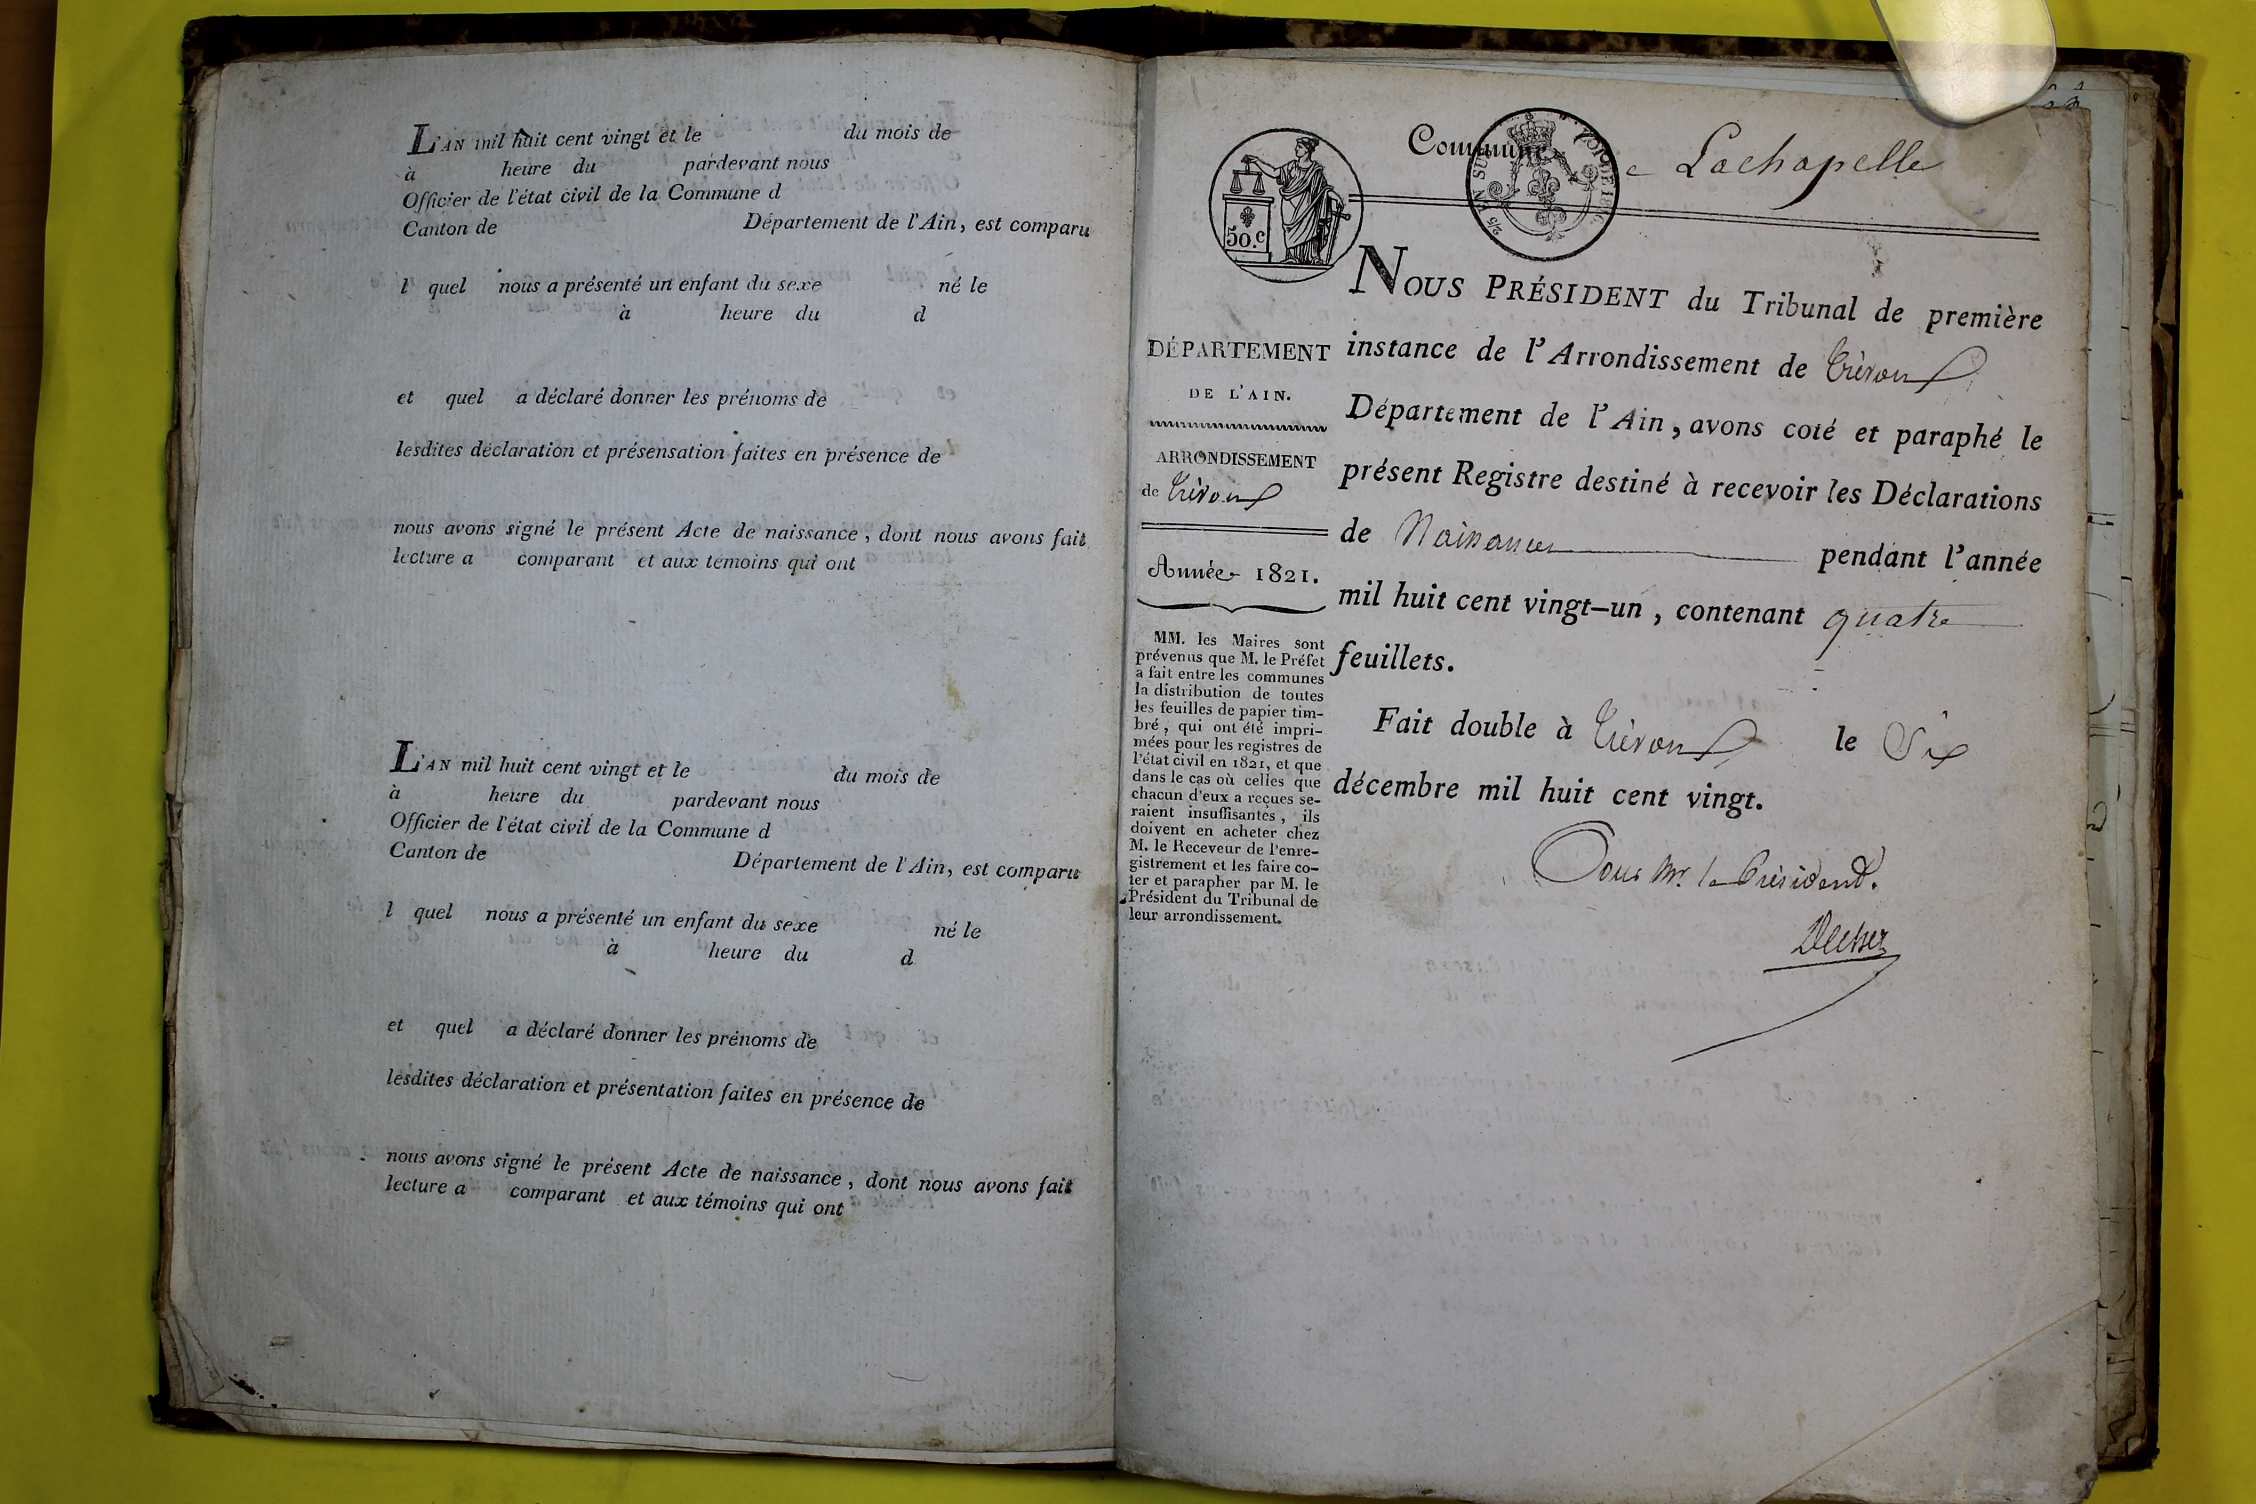 L'AN mil huit cent vingt et le du mois de
à heure du pardevant nous
Officier de l'état civil de la Commune d
Canton de Département de l'Ain, est comparu
l quel nous a présenté un enfant du sexe né le
à heure du d
et quel a déclaré donner les prénoms de
lesdites déclaration et présensation faites en présence de
nous avons signé le présent Acte de naissance, dont nous avons fait
lecture a comparant et aux témoins qui ont
L'AN mil huit cent vingt et le du mois de
à heure du pardevant nous
Officier de l'état civil de la Commune d
Canton de Département de l'Ain, est comparu
l quel nous a présenté un enfant du sexe né le
à heure du d
et quel a déclaré donner les prénoms de
lesdites déclaration et présentation faites en présence de
nous avons signé le présent Acte de naissance, dont nous avons fait
lecture a comparant et aux témoins qui ont
Commune Lachapelle
50.c
DÉPARTEMENT
DE L'AIN.
ARRONDISSEMENT
de Trévoux
Année 1821.
MM. les Maires sont
prévenus que M. le Préfet
a fait entre les communes
la distribution de toutes
les feuilles de papier tim-
bré, qui ont été impri-
mées pour les registres de
l'état civil en 1821, et que
dans le cas où celles que
chacun d'eux a reçues se-
raient insuffisantes, ils
doivent en acheter chez
M. le Receveur de l'enre-
gistrement et les faire co-
ter et parapher par M. le
Président du Tribunal de
leur arrondissement.
NOUS PRÉSIDENT du Tribunal de première
instance de l'Arrondissement de Trévoux
Département de l'Ain, avons coté et paraphé le
présent Registre destiné à recevoir les Déclarations
de Naissances pendant l'année
mil huit cent vingt-un, contenant quatre
feuillets.
Fait double à Trévoux le Six
décembre mil huit cent vingt.
Pour Mr. le Président.